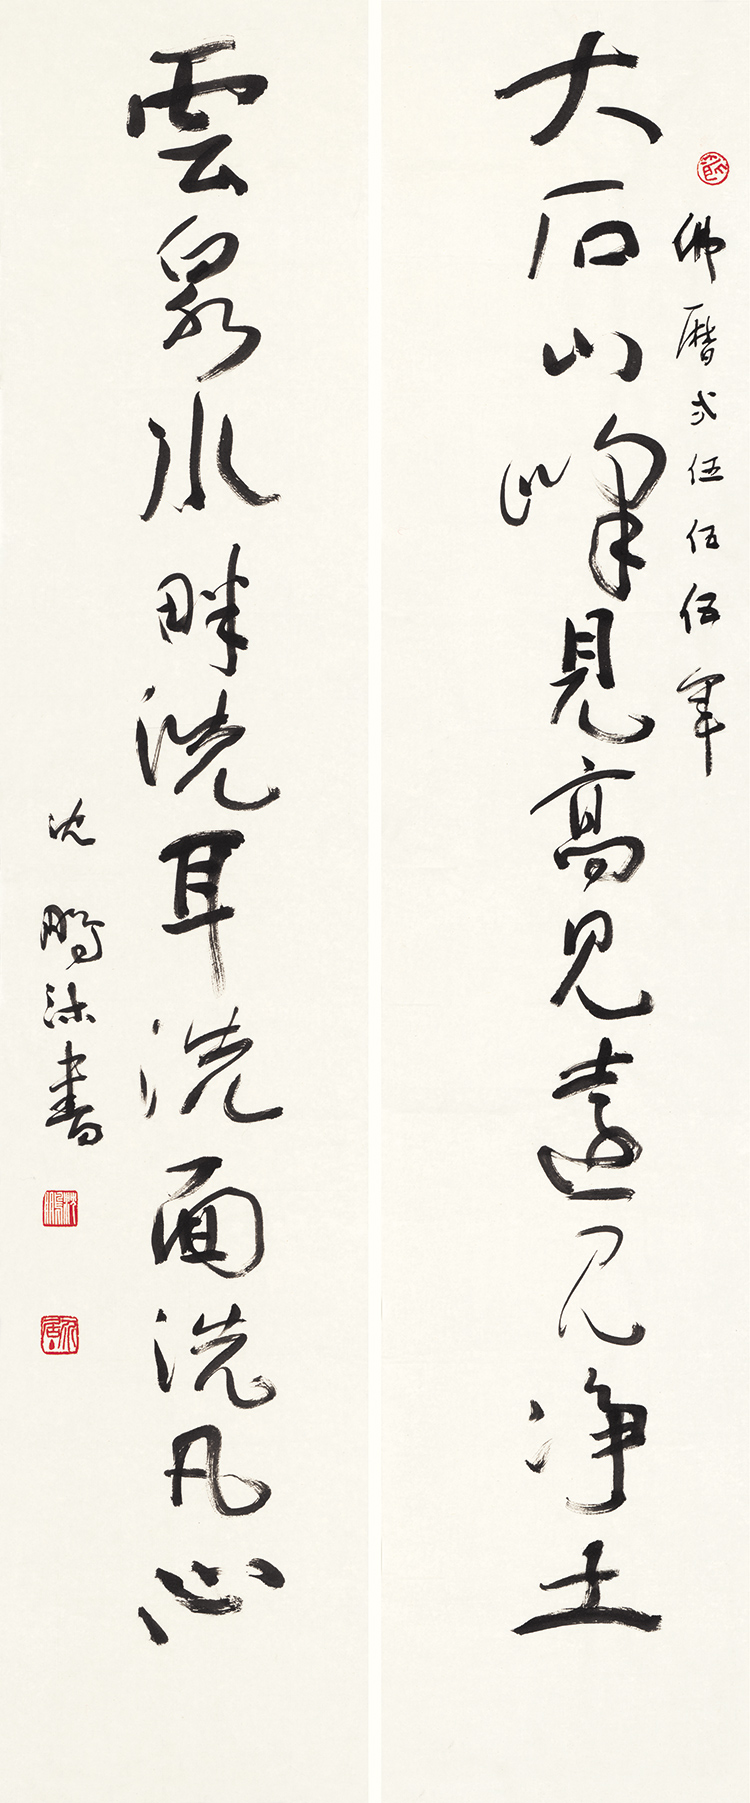 佛曆弍伍伍伍年
大石山峰見高見遠見净土
雲泉水畔洗耳洗面洗凡心
沈鵬沐書
沈鵬
介居